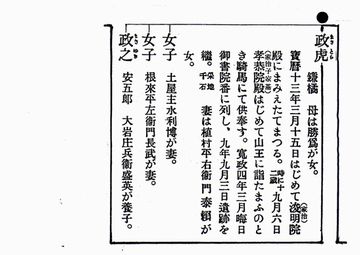 政虎
鎌橘 母は勝爲が女。
寳曆十三年三月十五日はじめて浚明院
殿にまみえたてまつる。時に十二歲九月六日
孝恭院殿はじめて山王に詣たまふのと
き騎馬にて供奉す。寬政四年三月晦日
御書院番に列し、九年九月三日遺跡を
繼。采地千石 妻は植村平右衞門泰嶺が
女。
女子 土屋主水利博が妻。
女子 根來平左衞門長武が妻。
政之 安五郞 大岩庄兵衞盛英が養子。